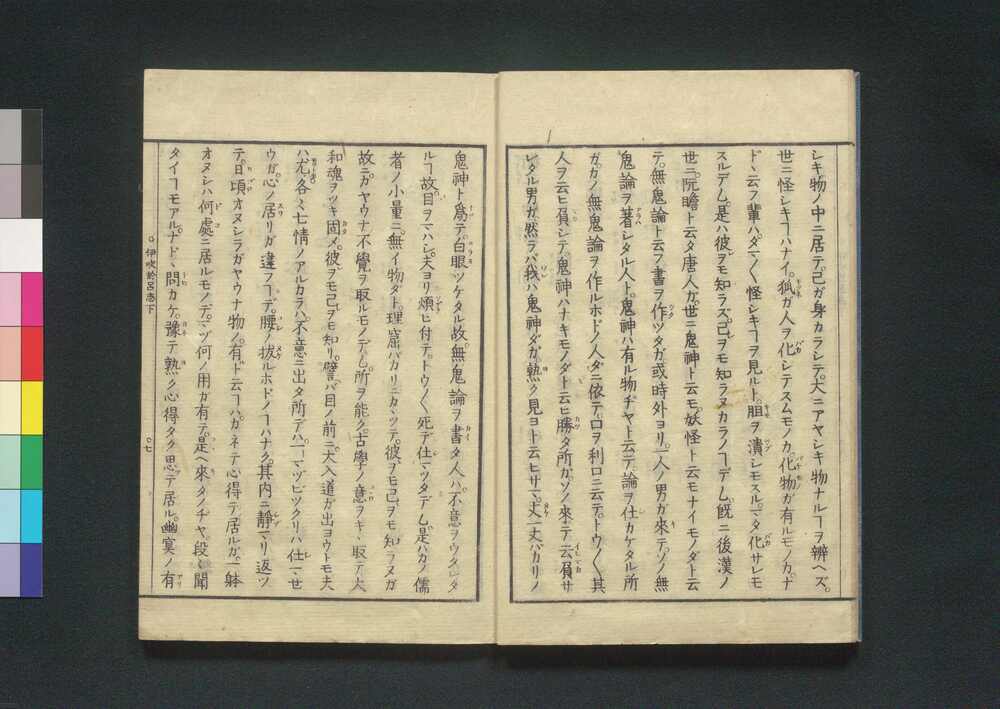 シキ物ノ中ニ居テ。己ガ身カラシテ。大ニアヤシキ物ナルヿヲ辨ヘズ。
世ニ怪シキヿハナイ。狐ガ人ヲ化シテスムモノカ。化物ガ有ルモノカ。ナ
ド、云フ輩ハ。ダマ〳〵怪シキヿヲ見ルト。胆ヲ潰シモスル。マタ化サレモ
スルデム。是ハ彼ヲモ知ラズ。己ヲモ知ラヌカラノヿデム。既ニ後漢ノ
世ニ。阮瞻ト云タ唐人ガ。世ニ鬼神ト云モ。妖怪ト云モナイモノダト云
テ。無鬼論ト云フ書ヲ作ツタガ。或時外ヨリ。一人ノ男ガ來テ。ソノ無
鬼論ヲ著シタル人ト。鬼神ハ有ル物ヂヤト云テ。論ヲ仕カケタル所
ガ。ガノ無鬼論ヲ作ルホドノ人ダニ依テ。口ヲ利口ニ云テ。トウ〳〵其
人ヲ云ヒ負シテ。鬼神ハナキモノダト云ヒ勝タ所ガ。ソノ來テ云負サ
レタル男ガ。然ラバ我ハ鬼神ダガ。熟ク見ヨト云ヒサマ。丈一丈バカリノ
鬼神ト為テ。白眼ツケタル故。無鬼論ヲ書タ人ハ。不意ヲウタレタ
ルヿ故。目ヲマハシ。夫ヨリ煩ヒ付テ。トウ〳〵死デ仕マツタデム。是ハカノ儒
者ノ小量ニ。無イ物ダト。理窟バカリニカヽツテ。彼ヲモ己ヲモ知ラヌガ
故ニ。ガヤウナ不覺ヲ取ルモノデム。所ヲ能ク。古學ノ意ヲキヽ取テ。大
和魂ヲツキ固メ。彼ヲモ己ヲモ知リ。譬バ目ノ前ニ。大入道ガ出ヨウトモ。夫
ハ尤各々七情ノアルカラハ。不意ニ出タ所デハ。一ト一マヅビツクリハ仕マセ
ウガ。心ノ居リガ違フヿデ。腰ノ拔ルホドノヿハナク。其内ニ靜マリ返ツ
テ。日頃オヌシラガヤウナ物ノ。有ト云ヿハ。ガネテ心得テ居ルガ。一躰
オヌシハ何處ニ居ルモノデ。マヅ何ノ用ガ有テ。是ヘ來タノヂヤ。段々聞
タイヿモアル。ナドヽ問カケ。豫テ熟ク心得タク思テ居ル。幽冥ノ有
伊吹於呂志下
〇七